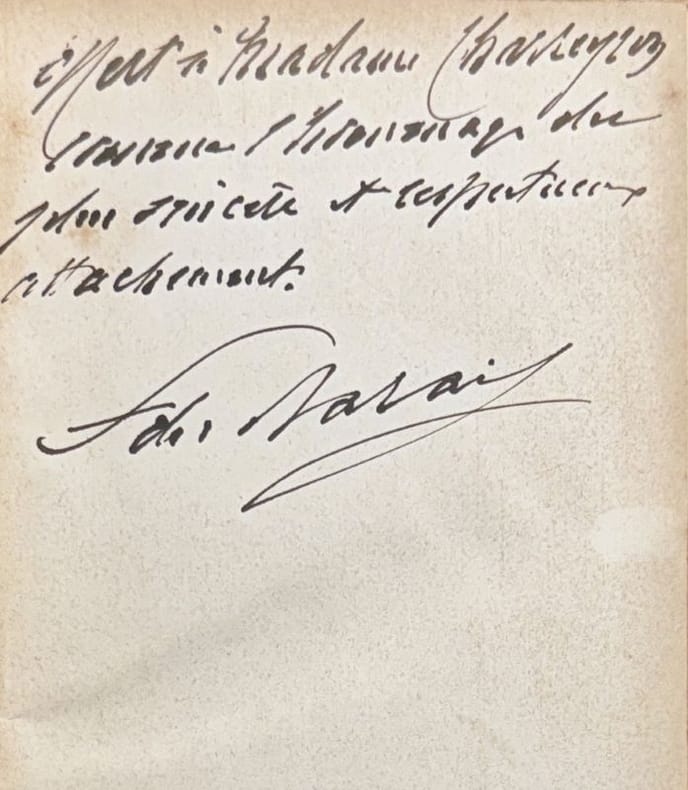 offert à Madame Charleyron
comme l'hommage du
plus sincère et respectueux
attachement.